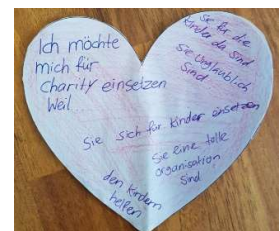 Ich möchte
mich für
Charity einsetzen
Weil
Sie für die
Kinder da sind
sie unglaublich
sind
Sie sich für Kinder einsetzen
Sie eine tolle
organisation
sind
den Kindern
helfen